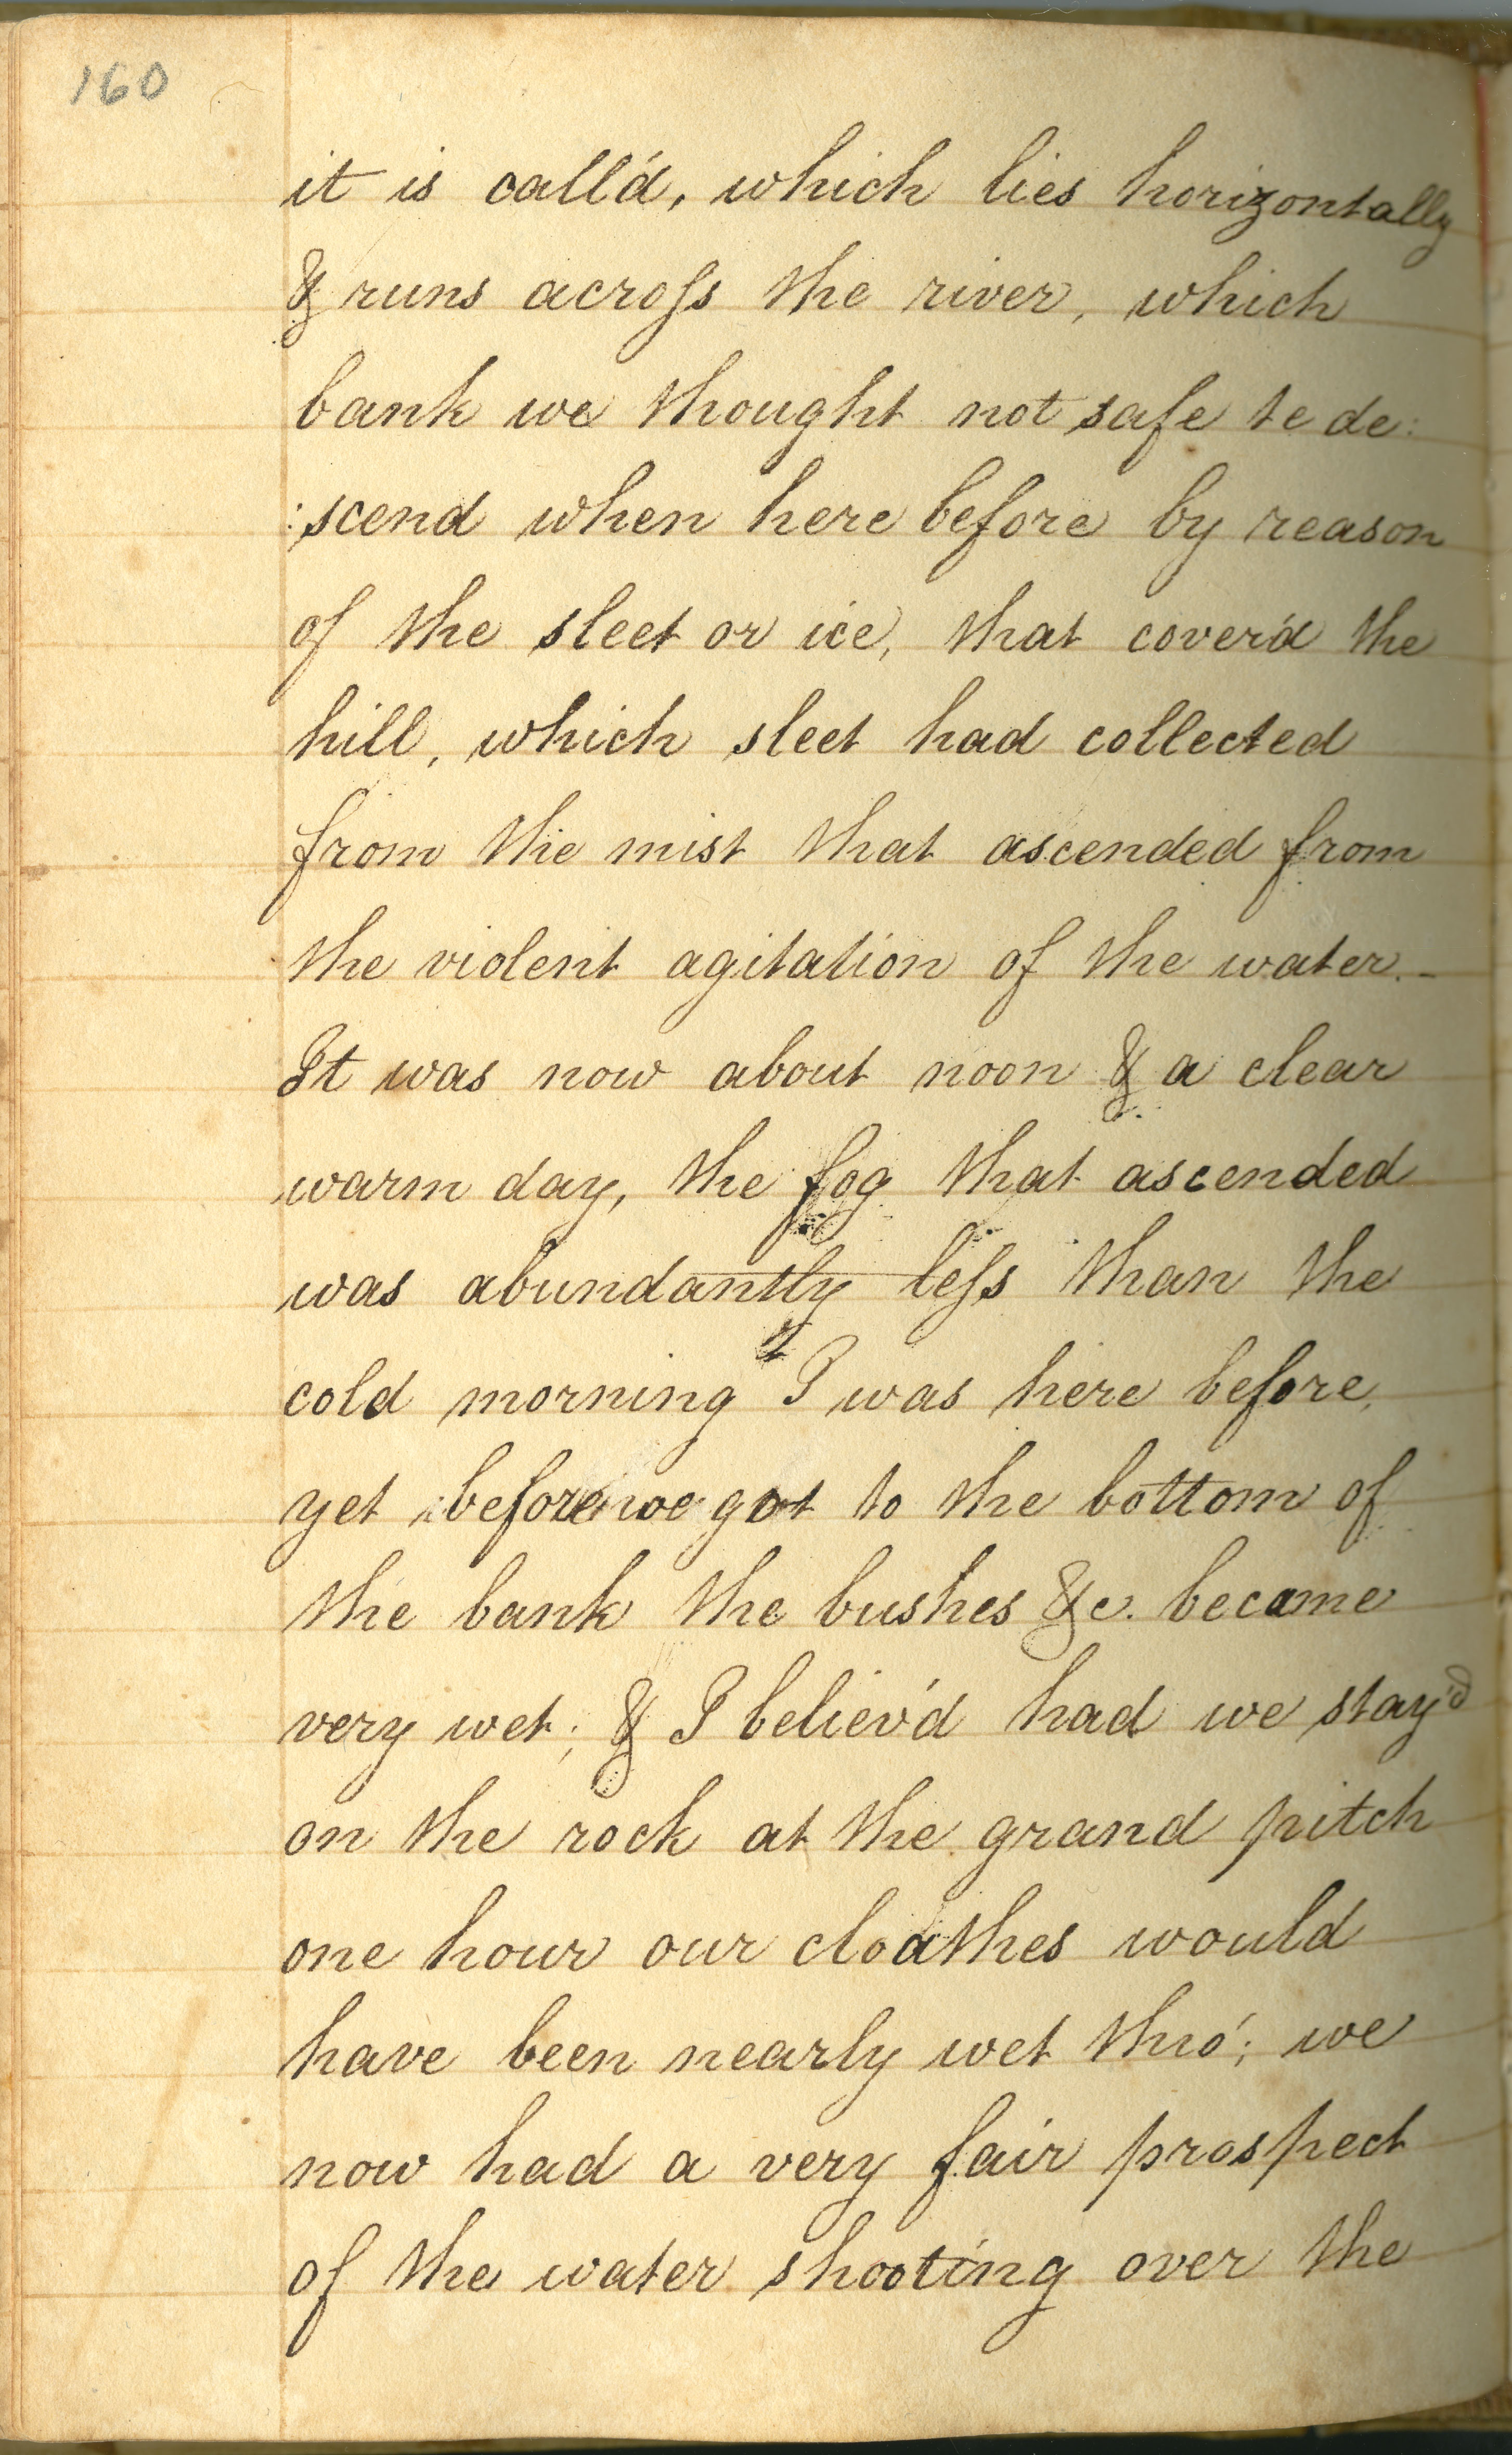 160
it is call'd, which lies horizontally
& runs acroſs the river, which
bank we thought not safe to de:
:scend when here before by reason
of the sleet or ice, that cover'd the
hill, which sleet had collected
from the mist that ascended from
the violent agitation of the water.-
It was now about noon & a clear
warm day, the fog that ascended
was abundantly leſs than the
cold morning I was here before,
yet before we got to the bottom of
the bank the bushes &c. became
very wet; & I believ'd had we stay'd
on the rock at the grand pitch
one hour our cloathes would
have been nearly wet thro'; we
now had a very fair prospect
of the water shooting over the